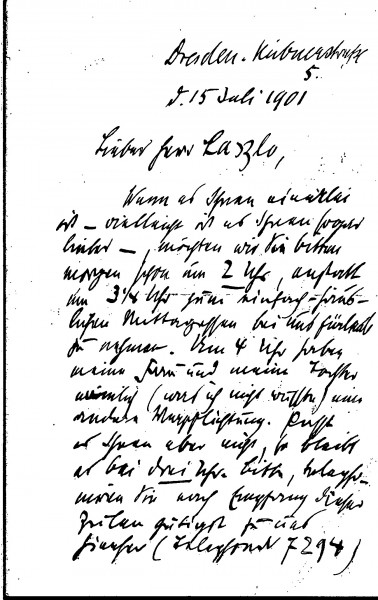 Dresden. Hübnerstraße
5.
d. 15 Juli 1901
Lieber Herr Laszlo,
Wenn es Ihnen einerlei
ist – vielleicht ist es Ihnen sogar
lieber –, möchten wir Sie bitten
morgen schon um 2 Uhr, anstatt
um 3 1/4 Uhr zum einfach-häus-
lichen Mittagessen bei uns fürlieb
zu nehmen. Um 4 Uhr haben
meine Frau und meine Tochter
nämlich (was ich nicht wußte) eine
andere Verpflichtung. Paßt
es Ihnen aber nicht, so bleibt
es bei drei Uhr. Bitte, telepho-
nieren Sie nach Empfang dieser
Zeilen gütigst zu uns
hierher (Telephon 7294)